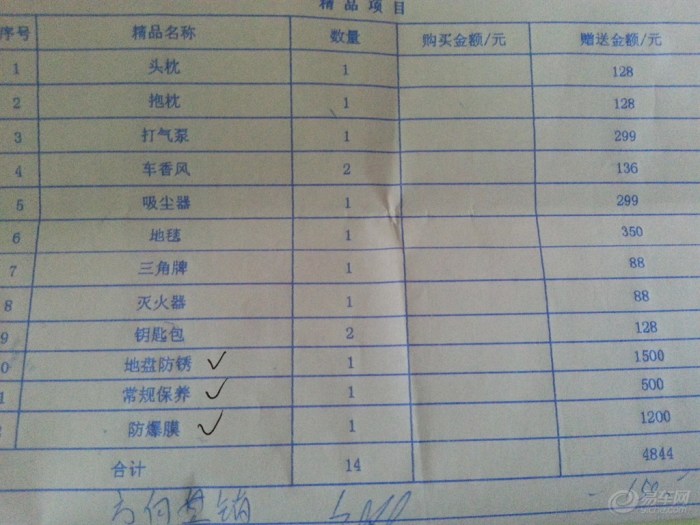 精品项目
序号 精品名称 数量 购买金额/元 赠送金额/元
1 头枕 1 128
2 抱枕 1 128
3 打气泵 1 299
4 车香风 2 136
5 吸尘器 1 299
6 地毯 1 350
7 三角牌 1 88
8 灭火器 1 88
9 钥匙包 2 128
0 地盘防锈 ✓ 1 1500
1 常规保养 ✓ 1 500
2 防爆膜 ✓ 1 1200
合计 14 4844
方向盘锁
易车网